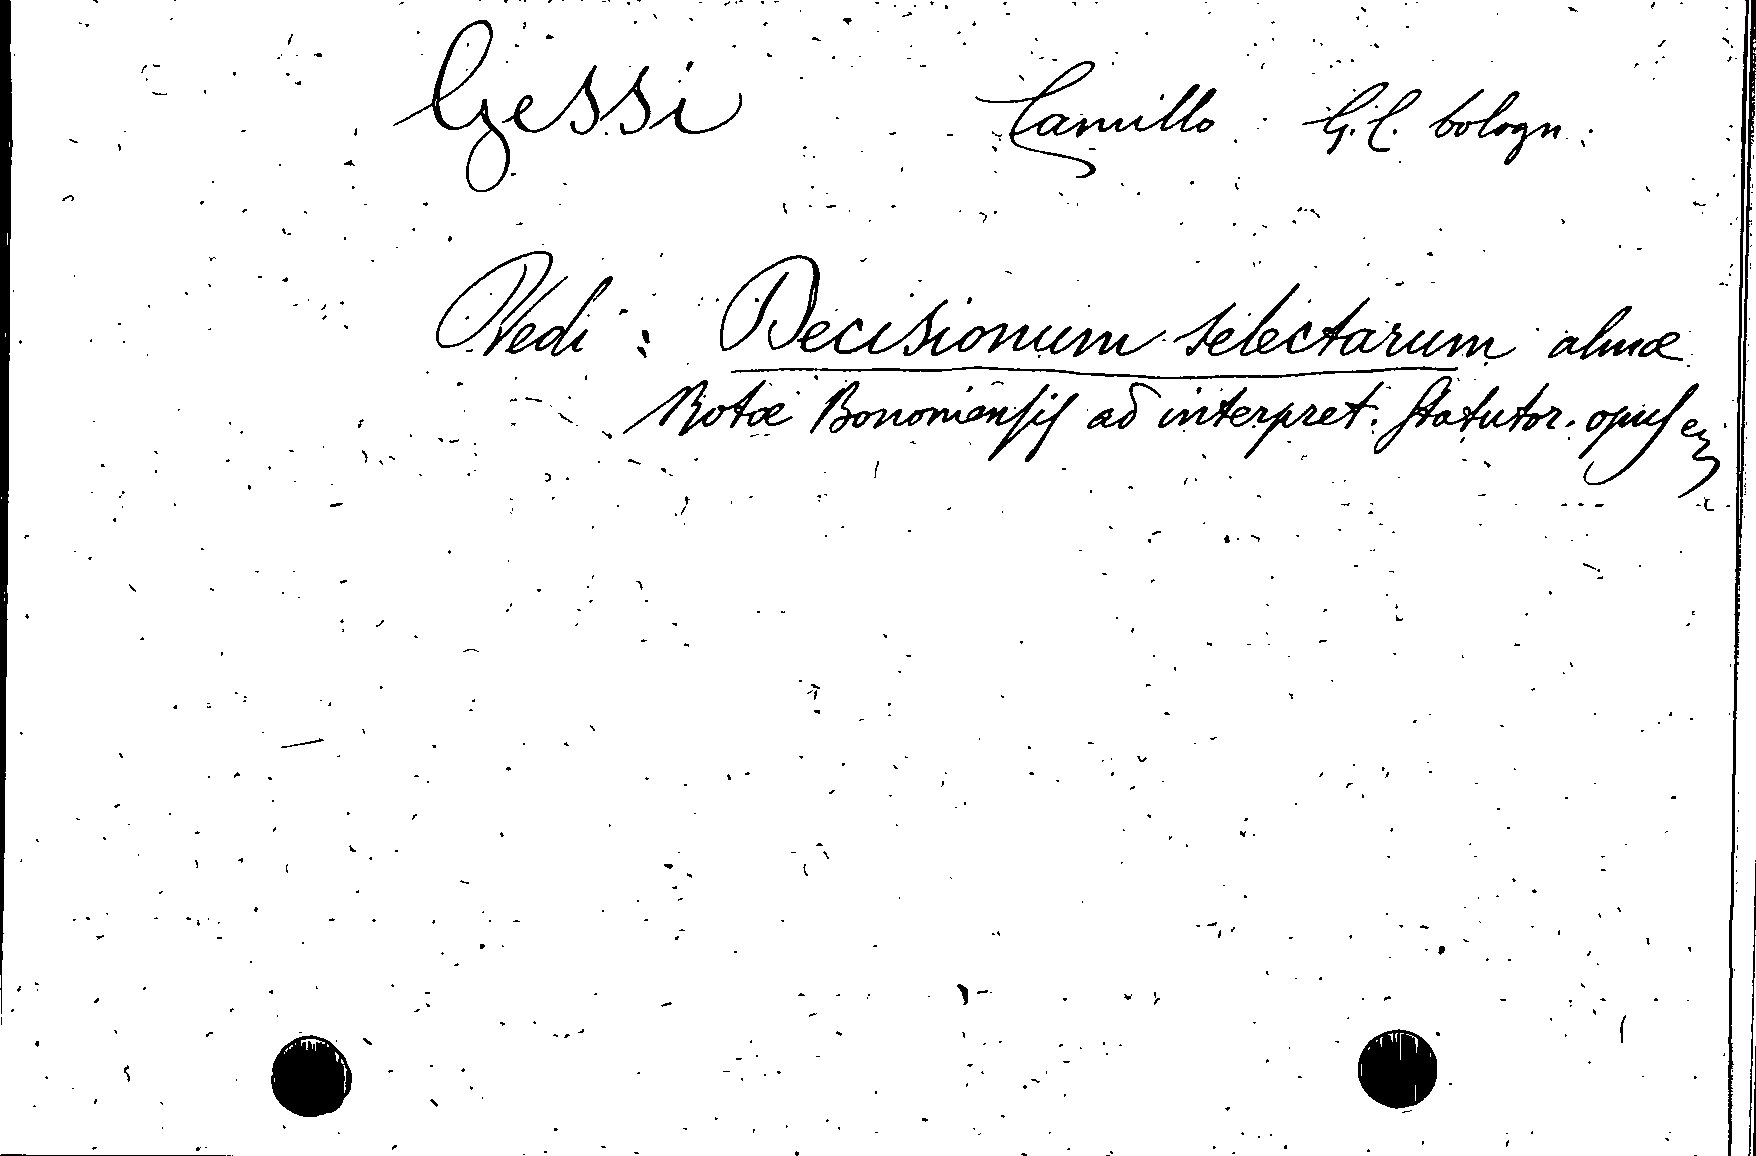 Gessi Camillo G. C. bologn.
Vedi: Decisionum selectarum almæ
Rotæ Bononiensis ad interpret. Statutor. opus